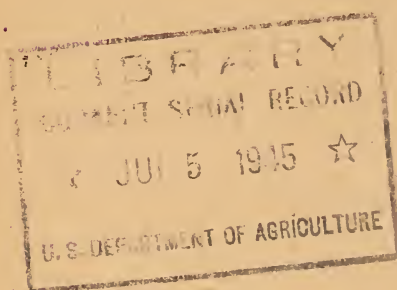 LIBRARY
CURRENT SERIAL RECORD
☆ JUL 5 1945 ☆
U. S. DEPARTMENT OF AGRICULTURE